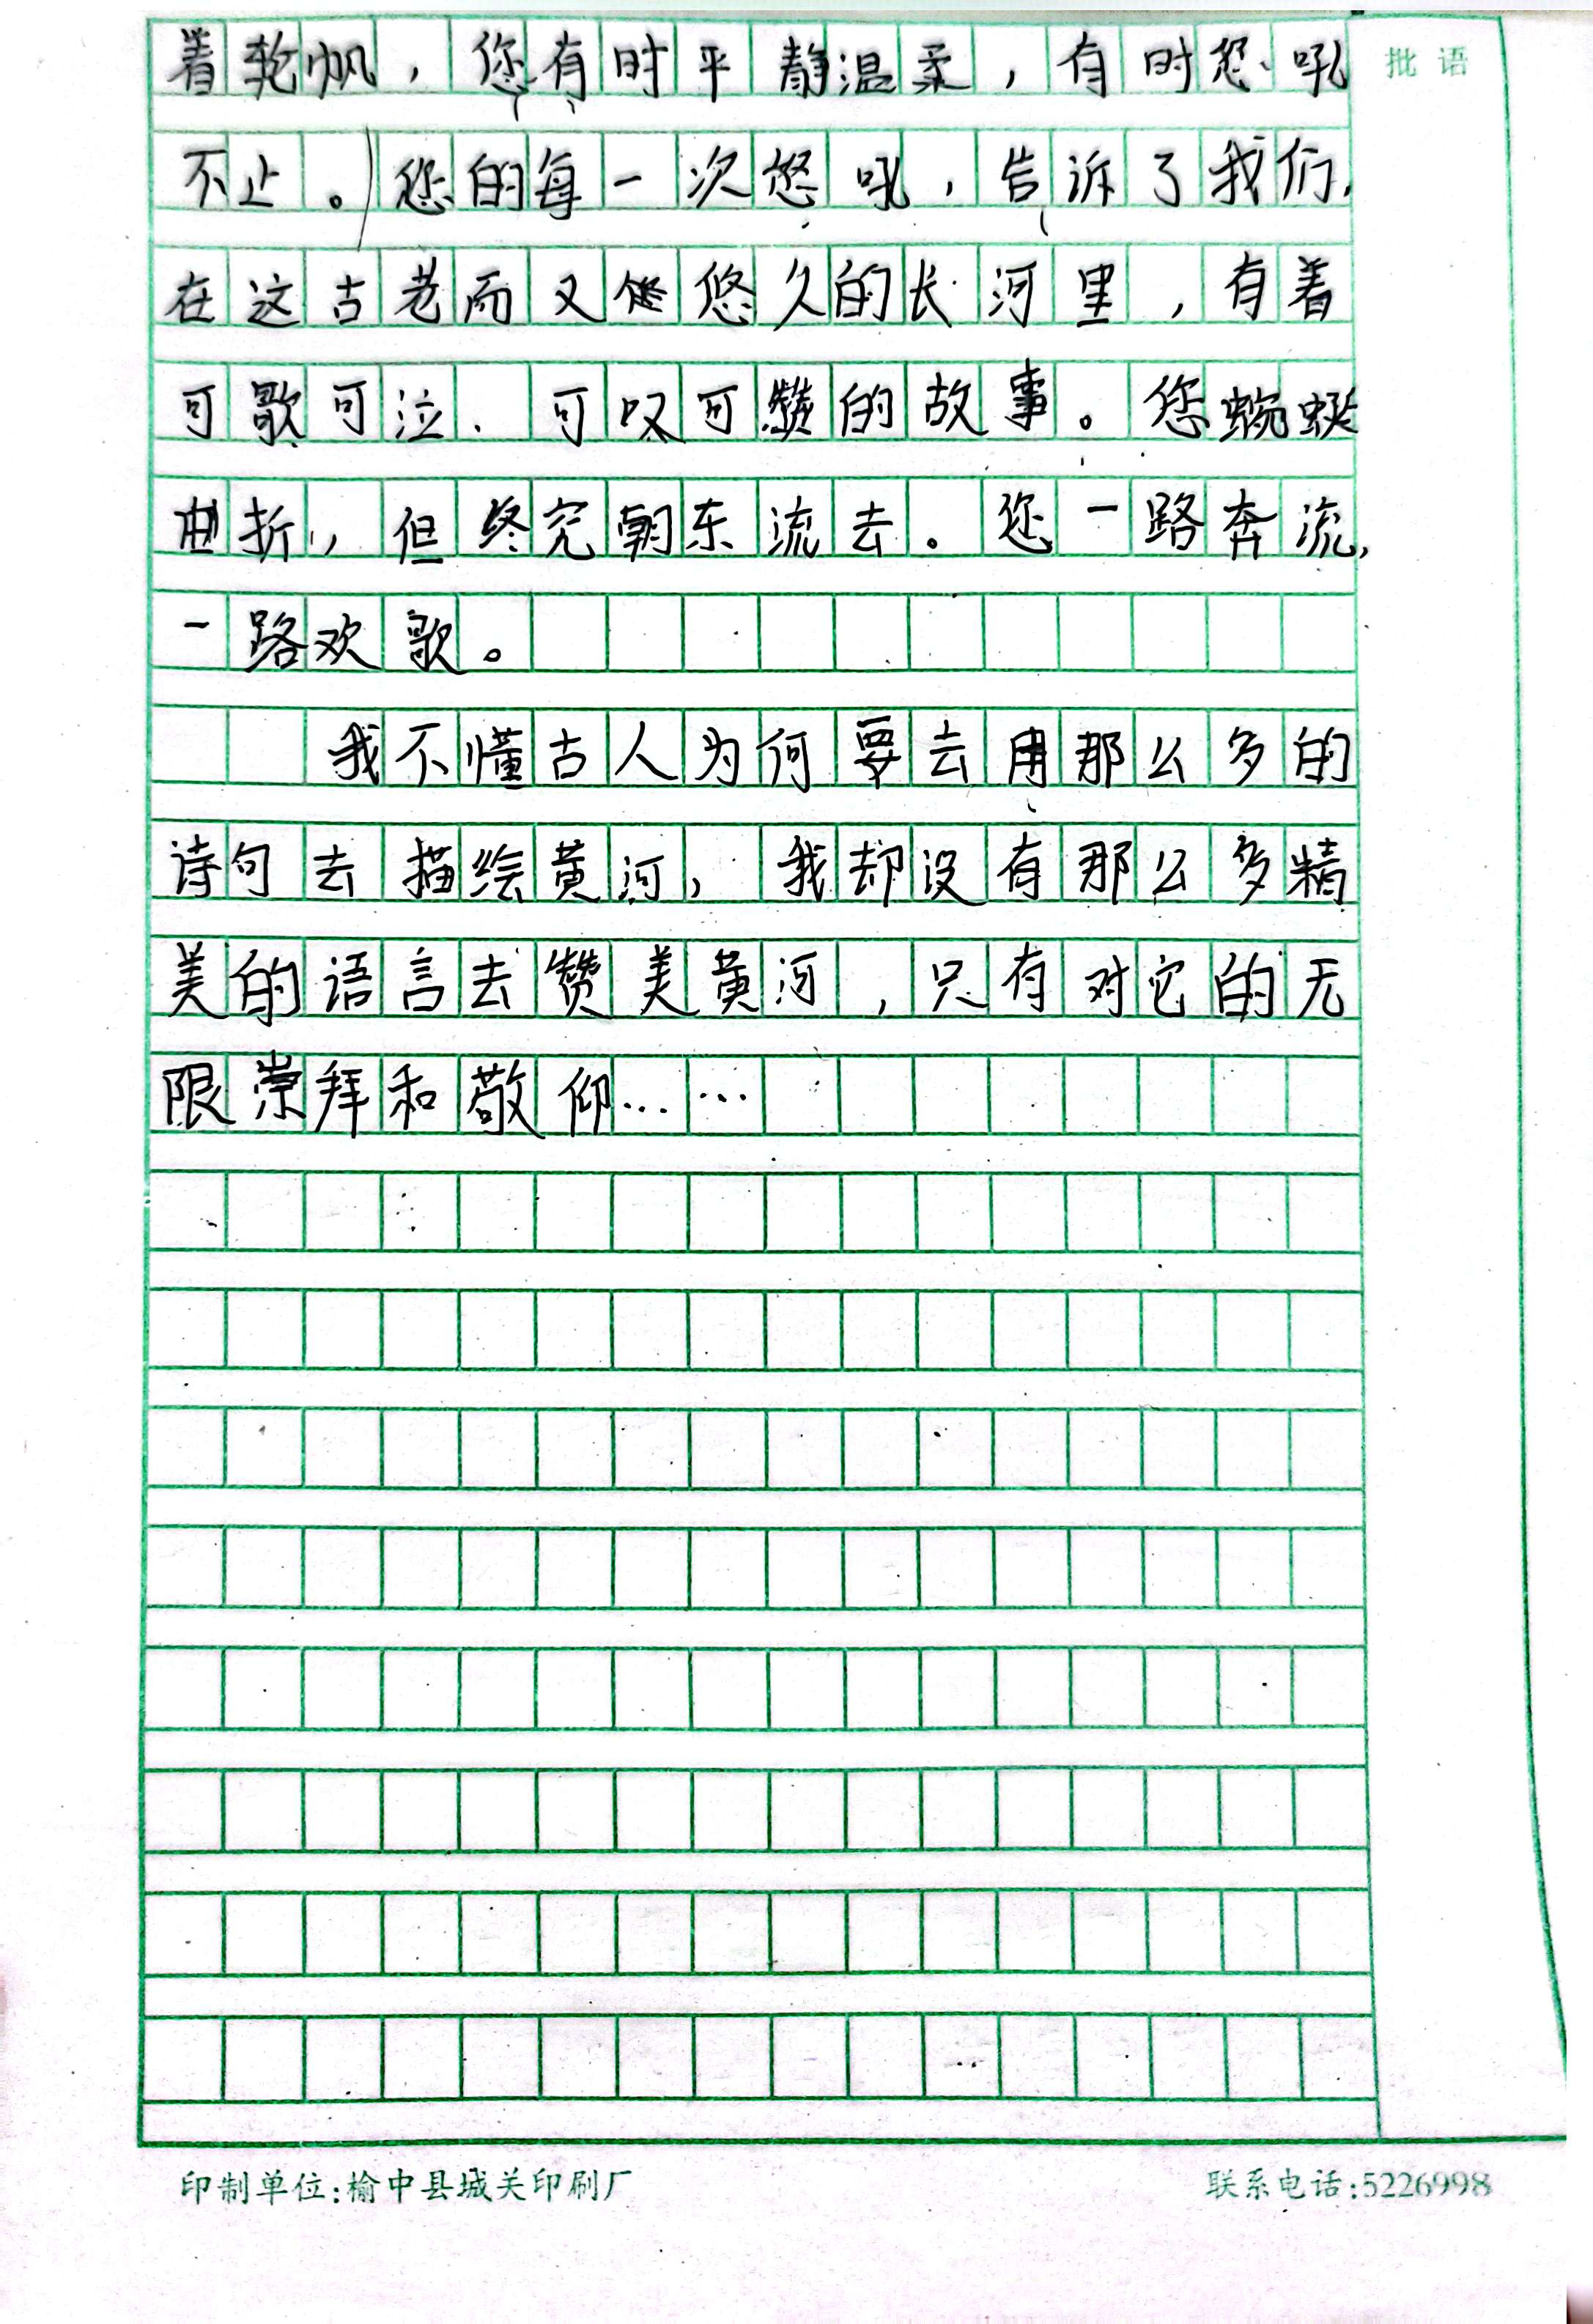 着乾帆，您有时平静温柔，有时怒吼
批语
不止。您的每一次怒吼，告诉了我们，
在这古老而又悠久的长河里，有着
可歌可泣、可叹可赞的故事。您蜿蜒
曲折，但终究朝东流去。您一路奔流，
一路欢歌。
我不懂古人为何要去用那么多的
诗句去描绘黄河，我却没有那么多精
美的语言去赞美黄河，只有对它的无
限崇拜和敬仰……
印制单位：榆中县城关印刷厂
联系电话：5226998